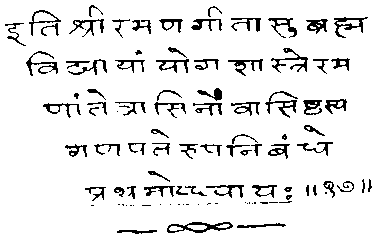 इति श्रीरमणगीतासु ब्रह्म
विद्यायां योगशास्त्रे रम
णांतेवासिनो वासिष्ठस्य
गणपतेरुपनिबंधे
प्रथमोऽध्यायः ॥१७॥